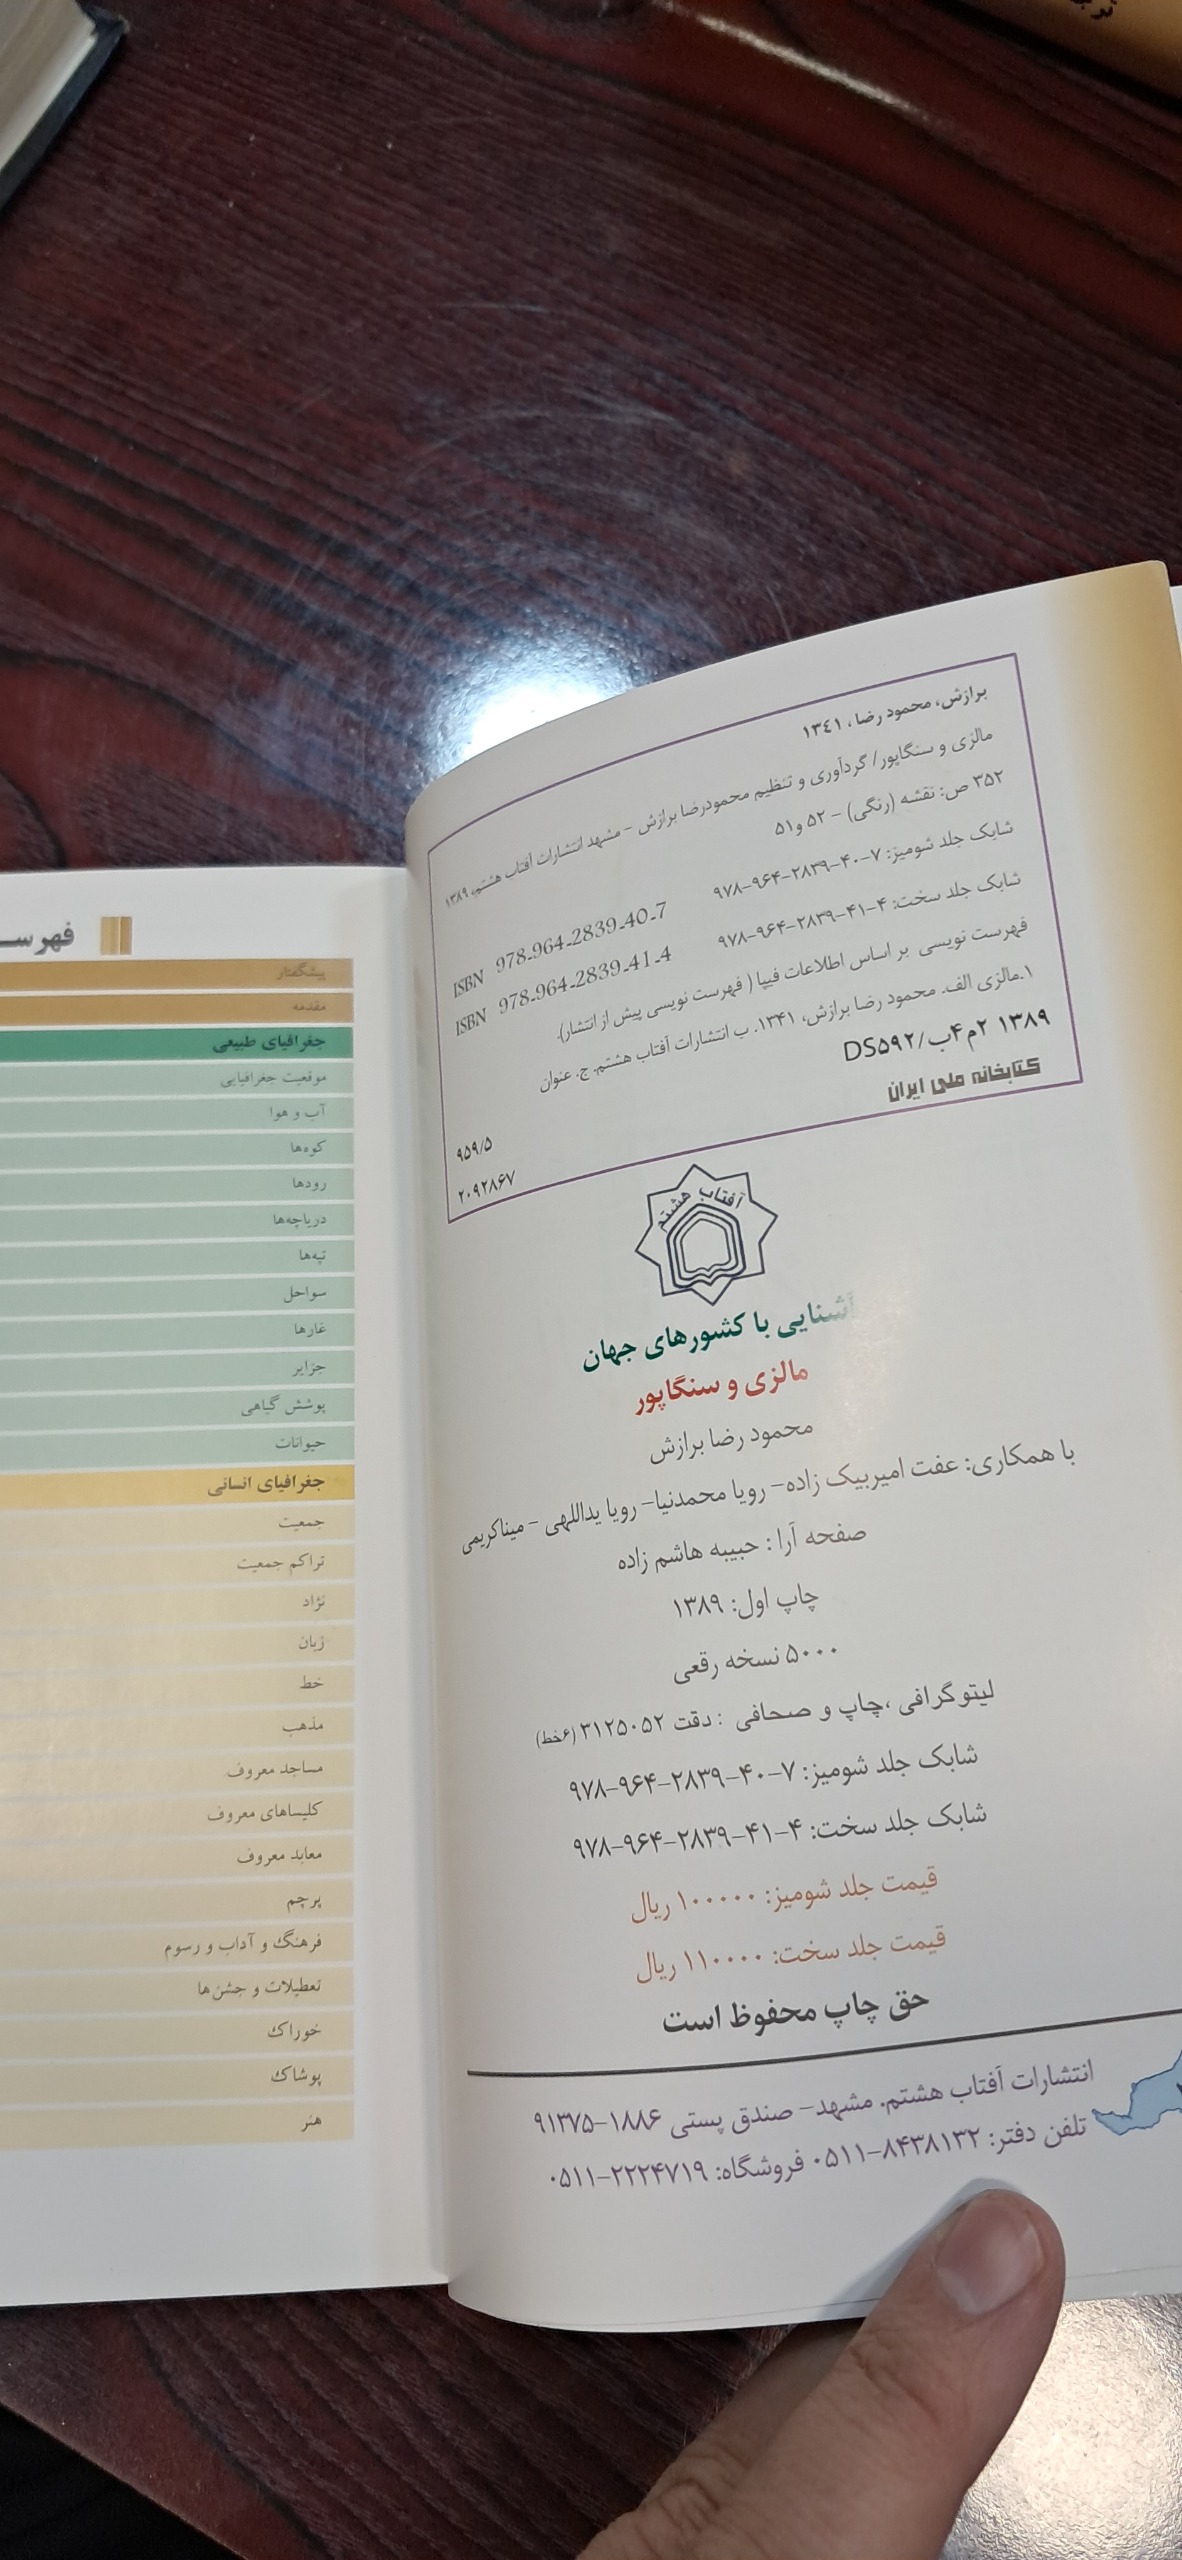 برازش، محمود رضا، ۱۳۴۱
مالزی و سنگاپور/ گردآوری و تنظیم محمودرضا برازش - مشهد انتشارات آفتاب هشتم، ۱۳۸۹
۳۵۲ ص: نقشه (رنگی) - ۵۲ و ۵۱
شابک جلد شومیز: ۷-۴۰-۲۸۳۹-۹۶۴-۹۷۸
ISBN 978-964-2839-40-7
شابک جلد سخت: ۴-۴۱-۲۸۳۹-۹۶۴-۹۷۸
ISBN 978-964-2839-41-4
فهرست نویسی بر اساس اطلاعات فیپا ( فهرست نویسی پیش از انتشار).
۱.مالزی الف. محمود رضا برازش، ۱۳۴۱. ب انتشارات آفتاب هشتم. ج. عنوان
۱۳۸۹ ۲م۴ب/DS۵۹۲
کتابخانه ملی ایران
۹۵۹/۵
۲۰۹۲۸۶۷
آفتاب هشتم
آشنایی با کشورهای جهان
مالزی و سنگاپور
محمود رضا برازش
با همکاری: عفت امیربیک زاده- رویا محمدنیا- رویا یداللهی - میناکریمی
صفحه آرا : حبیبه هاشم زاده
چاپ اول: ۱۳۸۹
۵۰۰۰ نسخه رقعی
لیتوگرافی ،چاپ و صحافی : دقت ۳۱۲۵۰۵۲ (۶خط)
شابک جلد شومیز: ۷-۴۰-۲۸۳۹-۹۶۴-۹۷۸
شابک جلد سخت: ۴-۴۱-۲۸۳۹-۹۶۴-۹۷۸
قیمت جلد شومیز: ۱۰۰۰۰۰ ریال
قیمت جلد سخت: ۱۱۰۰۰۰ ریال
حق چاپ محفوظ است
انتشارات آفتاب هشتم. مشهد- صندق پستی ۱۸۸۶-۹۱۳۷۵
تلفن دفتر: ۸۴۳۸۱۳۲-۰۵۱۱ فروشگاه: ۲۲۲۴۷۱۹-۰۵۱۱
پیشگفتار
مقدمه
جغرافیای طبیعی
موقعیت جغرافیایی
آب و هوا
کوه‌ها
رودها
دریاچه‌ها
تپه‌ها
سواحل
غارها
جزایر
پوشش گیاهی
حیوانات
جغرافیای انسانی
جمعیت
تراکم جمعیت
نژاد
زبان
خط
مذهب
مساجد معروف
کلیساهای معروف
معابد معروف
پرچم
فرهنگ و آداب و رسوم
تعطیلات و جشن‌ها
خوراک
پوشاک
هنر